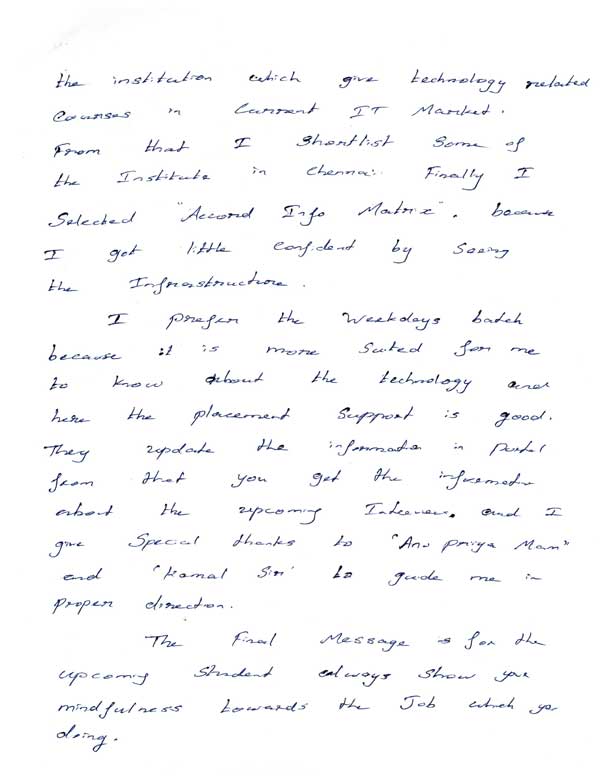 the institution which give technology related
Courses in Current IT Market.
From that I Shortlist Some of
the Institute in Chennai. Finally I
Selected "Accord Info Matrix". because
I got little Confident by Seeing
the Infrastructure.
I prefer the Weekdays batch
because it is more Suted for me
to know about the technology and
here the placement Support is good.
They update the information in Portal
from that you get the information
about the upcoming Interview. and I
give Special thanks to "Anu priya Mam"
and 'Kamal Sir' to guide me in
proper direction.
The Final Message is for the
upcoming Student always Show your
mindfulness towards the Job which you
doing.